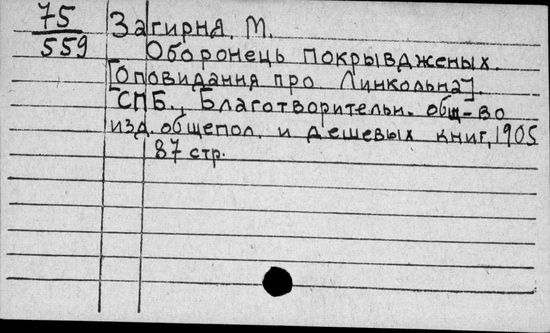 75
559
Загирня, М.
Оборонець покрывдженых.
[Оповидання про Линкольна].
СПБ., Благотворительн. общ-во
изд. общепол. и дешевых книг, 1905
87 стр.